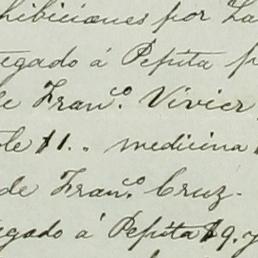 hibiciones por La
egado á Pepita p
de Franco. Vivier
ote $1.. medicina
de Franco. Cruz.
egado á Pepita $9. y